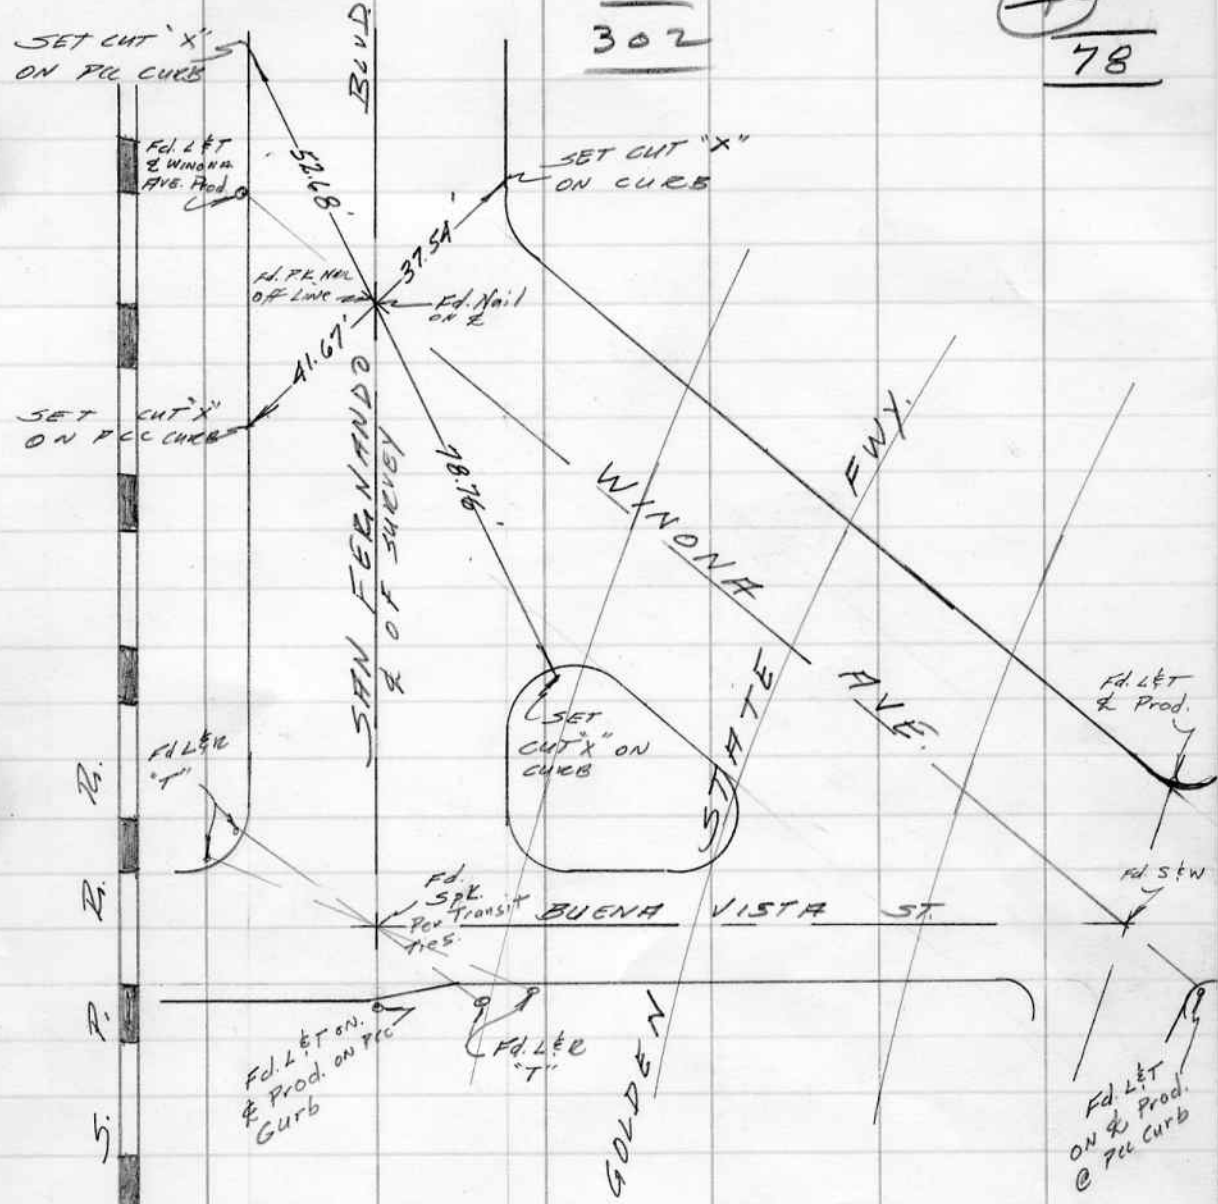 302
78
SET CUT "X"
ON PCC CURB
BLVD.
Fd. L&T
℄ WINONA
AVE. Prod.
52.68'
SET CUT "X"
ON CURB
37.54'
Fd. P.K. Nail
Off Line
Fd. Nail
ON ℄
41.67'
SET CUT "X"
ON PCC CURB
SAN FERNANDO
℄ OF SURVEY
78.76'
WINONA
AVE.
FWY.
STATE
GOLDEN
SET
CUT "X" ON
CURB
Fd. L&T
℄ Prod.
Fd L&R
"T"
Fd.
Spk.
Per Transit
Ties.
BUENA VISTA ST.
Fd. S&W
Fd. L&T ON.
℄ Prod. ON PCC
Curb
Fd. L&R
"T"
Fd. L&T
ON ℄ Prod.
@ PCC Curb
S. P. R. R.